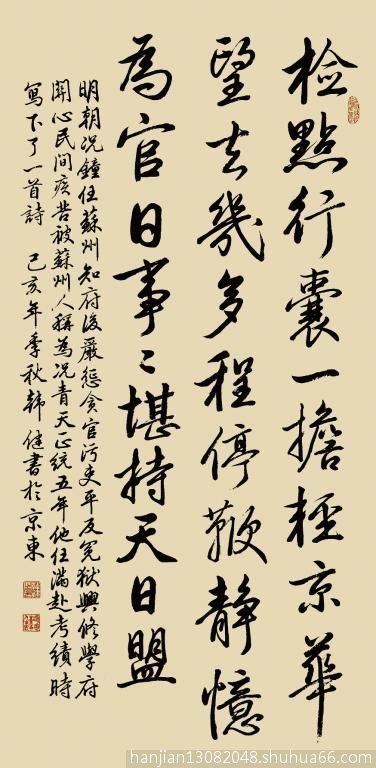 检點行囊一擔輕京華
望去幾多程停鞭静憶
為官日事〻堪持天日盟
明朝况鐘任蘇州知府後嚴懲貪官污吏平反冤獄興修學府
開心民間疾苦被蘇州人稱為况青天正統五年他任滿赴考績時
寫下了一首詩 己亥年季秋韩健書於京東
hanjian13082048.shuhua66.com